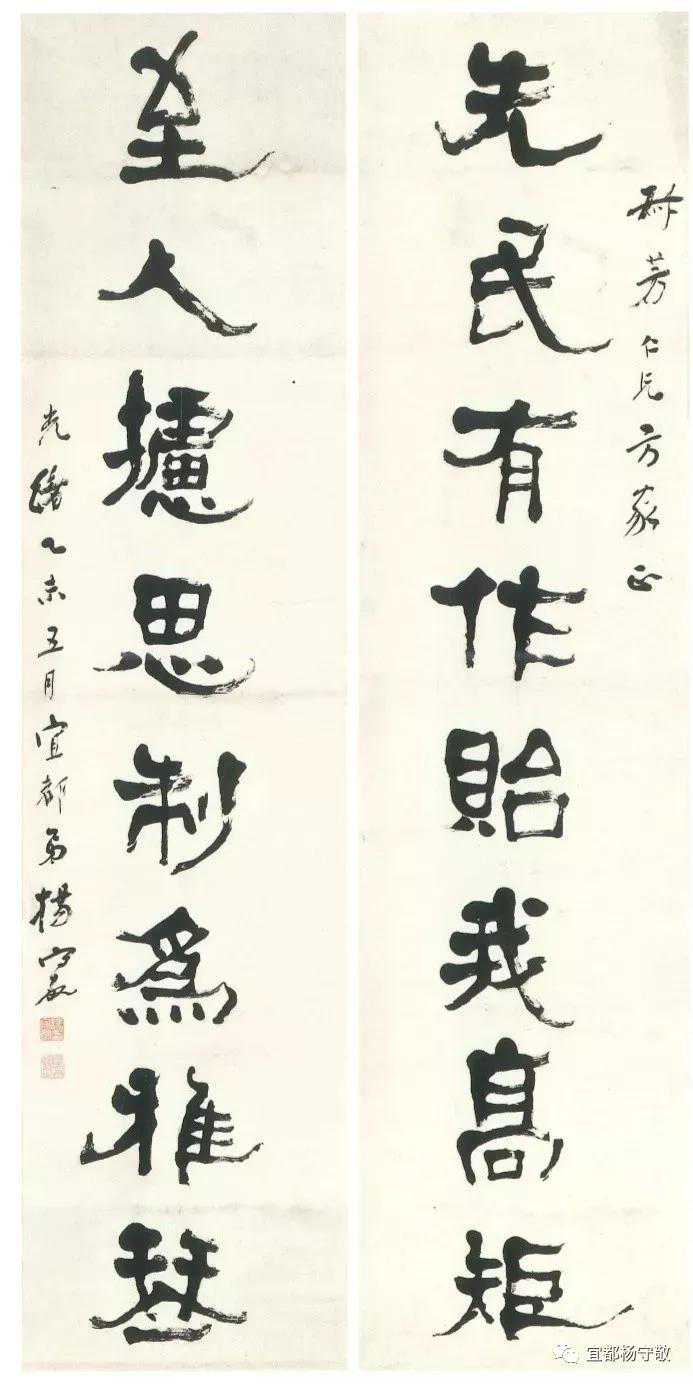 芳仁兄方家正
先民有作貽我高矩
至人攄思制爲雅琴
光緒乙未五月宜都弟楊守敬
宜都杨守敬